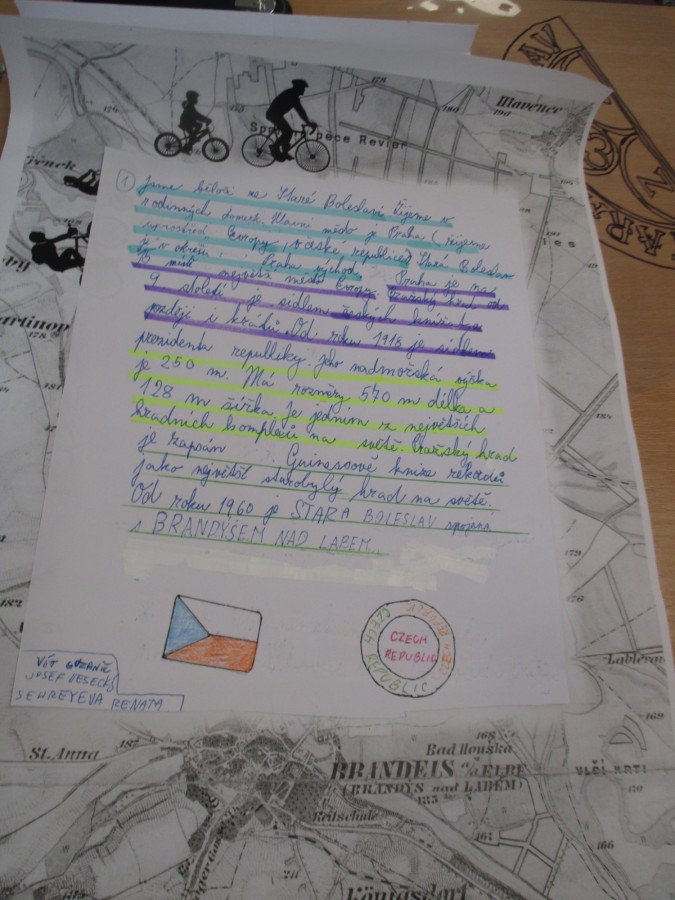 Hlavenec
Revier
les
1 Jsme běloši ve Staré Boleslavi žijeme v
rodinných domech. Hlavní město je Praha (žijeme
Evropy v české republice) Stará Boleslav
je v okresu Praha východ. Praha je na
13 místě největší město Evropy. Pražský hrad od
9 století je sídlem českých knížat a
později i králů. Od roku 1918 je sídlem
prezidenta republiky. Jeho nadmořská výška
je 250 m. Má rozměry 570 m délka a
128 m šířka. Je jedním z největších
hradních komplexů na světě. Pražský hrad
je zapsán Guinesově knize rekordů
jako největší starobylý hrad na světě.
Od roku 1960 je STARÁ BOLESLAV spojená
s BRANDÝSEM NAD LABEM.
CZECH REPUBLIC
CZECH
REPUBLIC
VÍT
JOSEF
RENATA
St. Anna
187
168
169
Bad Houška
BRANDEIS a/d ELBE
(BRANDÝS nad LABEM)
VLČÍ
Reitschule
167
166
Königsdorf